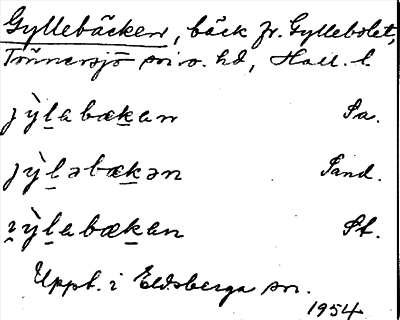 Gyllebäcken, bäck fr. Gyllebolet,
Tönnersjö sn o. hd, Hall. l.
jỳḻabæḵan Pa.
jỳḻəbæḵən Pand.
ɪỳḻabæḵan Pt.
Uppt. i Eldsberga sn.
1954